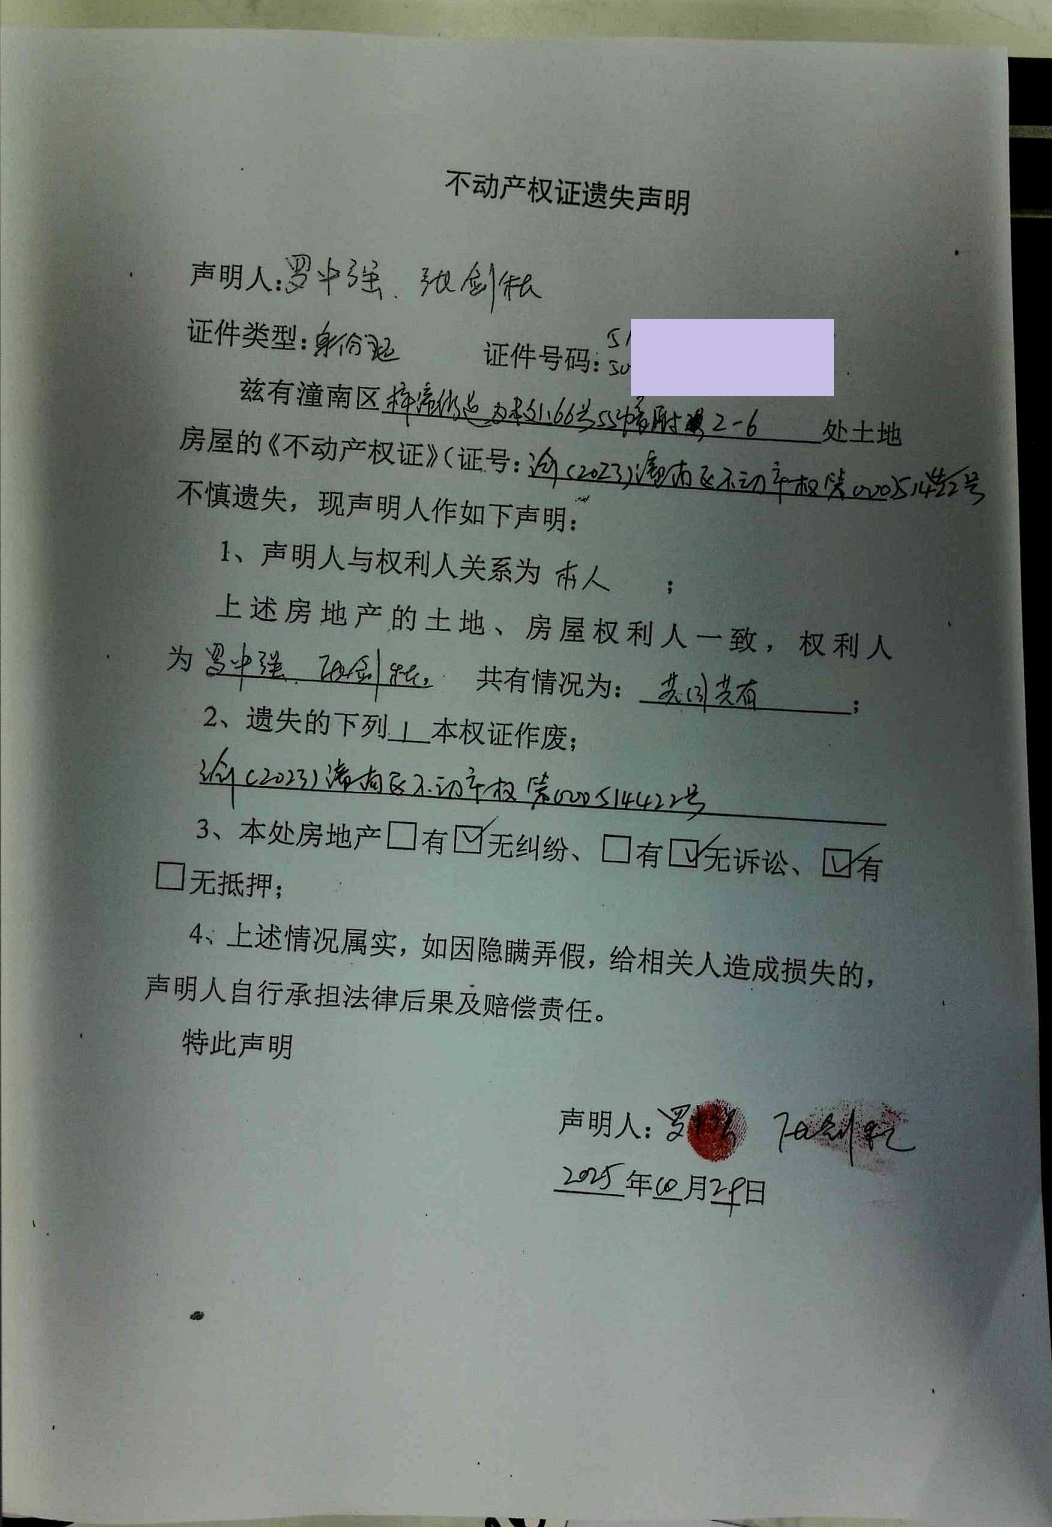 不动产权证遗失声明
声明人：罗中强、张剑秋
证件类型：身份证 证件号码：51
50
兹有潼南区梓潼街道 路166号55幢附2-6 处土地
房屋的《不动产权证》（证号：渝(2023)潼南区不动产权第000514422号
不慎遗失，现声明人作如下声明：
1、声明人与权利人关系为 本人 ；
上述房地产的土地、房屋权利人一致，权利人
为 罗中强、张剑秋， 共有情况为： 共同共有 ；
2、遗失的下列 1 本权证作废；
渝(2023)潼南区不动产权第000514422号
3、本处房地产□有☑无纠纷、□有☑无诉讼、☑有
□无抵押；
4、上述情况属实，如因隐瞒弄假，给相关人造成损失的，
声明人自行承担法律后果及赔偿责任。
特此声明
声明人：罗中强 张剑秋
2025年10月29日